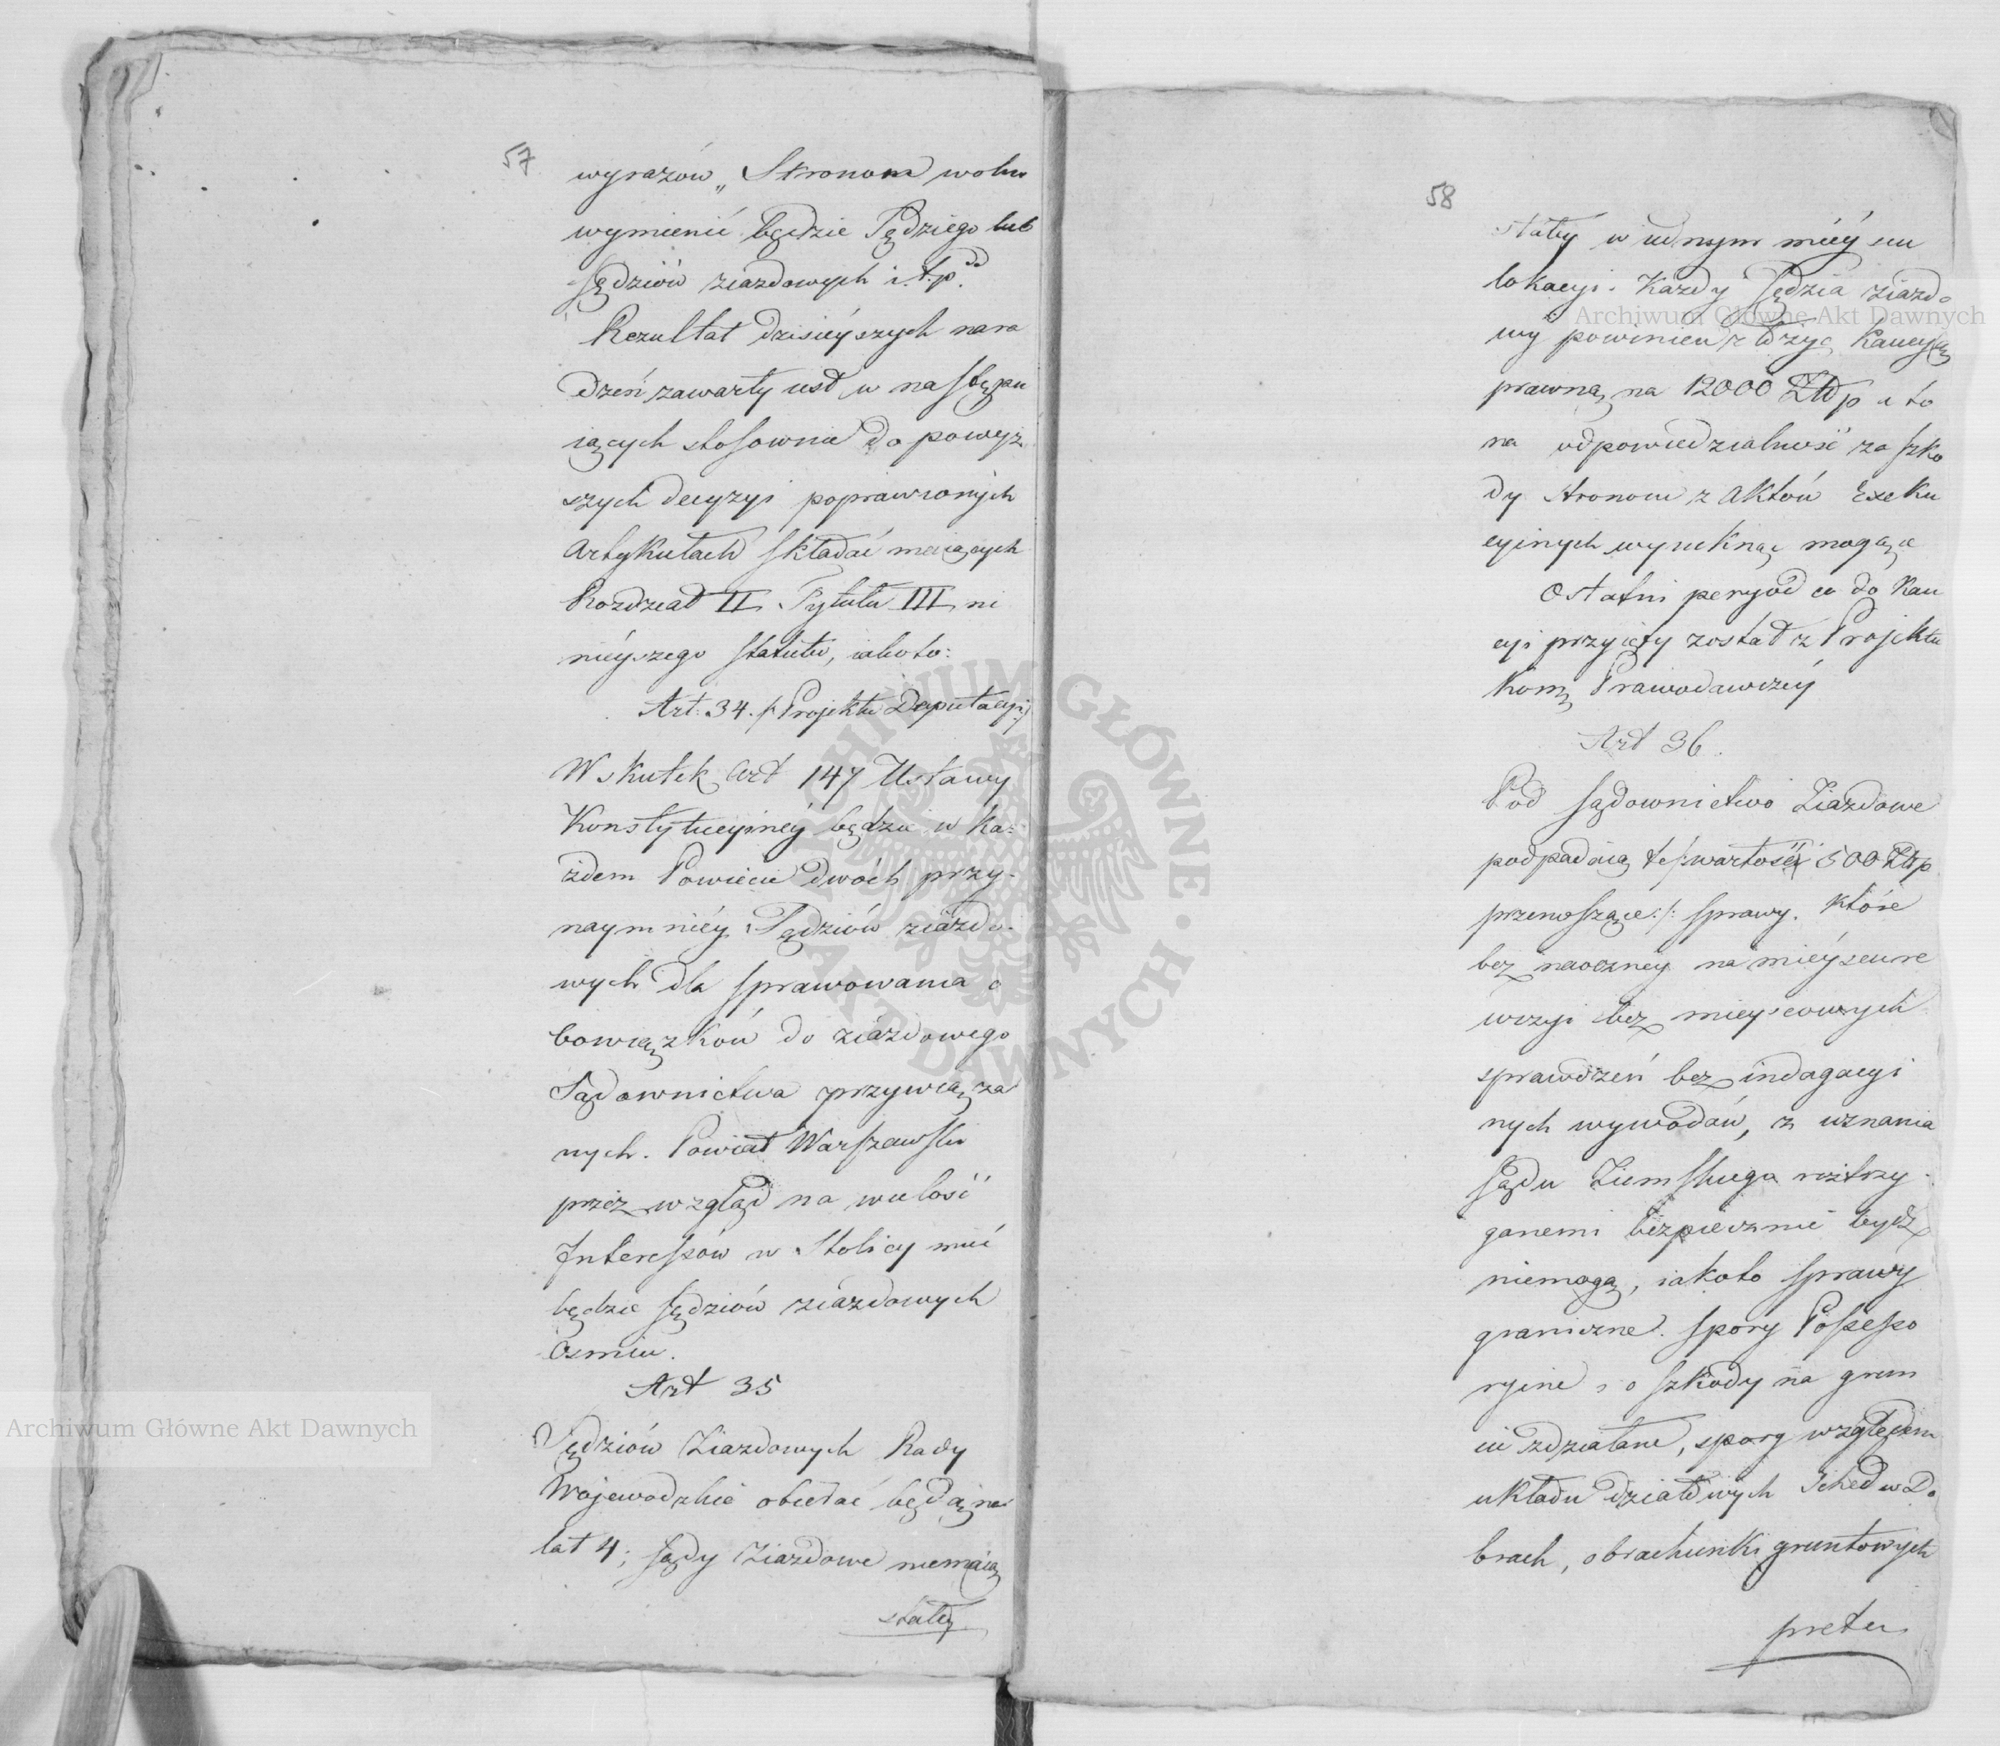 57
wyrazów „ Stronom wolno
wymienić będzie Sędziego lub
Sędziów ziazdowych i. t. p.
Rezultat dzisieyszych nara
dzeń zawarty iest w nastĕpu
iących stosownie do powyż
szych decyzyi poprawionych
Artykułach składać maiących
Rozdział II Tytułu III ni
nieyszego statutu, iakoto:
Art: 34. /: Projektu Deputacyi :/
W skutek Art 147 Ustawy
Konstytucyiney będzie w ka:
żdem Powiecie dwóch przy-
naymniéy Sędziów ziazdo-
wych dla sprawowania o
bowiązków do ziazdowego
Sądownictwa przywiąza
nych. Powiat Warszawski
przez wzgląd na wielość
Interessów w Stolicy mieć
będzie sędziów ziazdowych
Osmiu.
Art 35
Sędziów Ziazdowych Rady
Wojewodzkie obierać będą na
lat 4; sądy Ziazdowe niemaią
stałéy
58
stałéy w iednym mieyscu
lokacyi. Każdy Sędzia ziazdo
wy powinien złożyć Kaucyą
prawną na 12000 Złp a to
na odpowiedzialność za szko
dy stronom z Aktów Exeku
cyinych wyniknąć mogące
Ostatni peryod co do Kau
cyi przyięty został z Projektu
Kom Prawodawczéy
Art 36.
Pod sądownictwo Ziazdowe
podpadaią te /: wartość 500 Złp
przenoszące :/ sprawy. które
bez naoczney na mieyscu re
wizyi bez mieyscowych
sprawdzeń bez indagacyi
nych wywodów, z uznania
Sądu Ziemskiego roztrzy-
ganemi bezpiecznie bydź
niemogą, iakoto sprawy
graniczne. spory Possesso
ryine, o szkody na grun
cie zdziałane, spory względem
układu działowych Sched w Do
brach, obrachunki gruntowych
preten
Archiwum Główne Akt Dawnych
Archiwum Główne Akt Dawnych
ARCHIWUM GŁÓWNE · AKT DAWNYCH ·